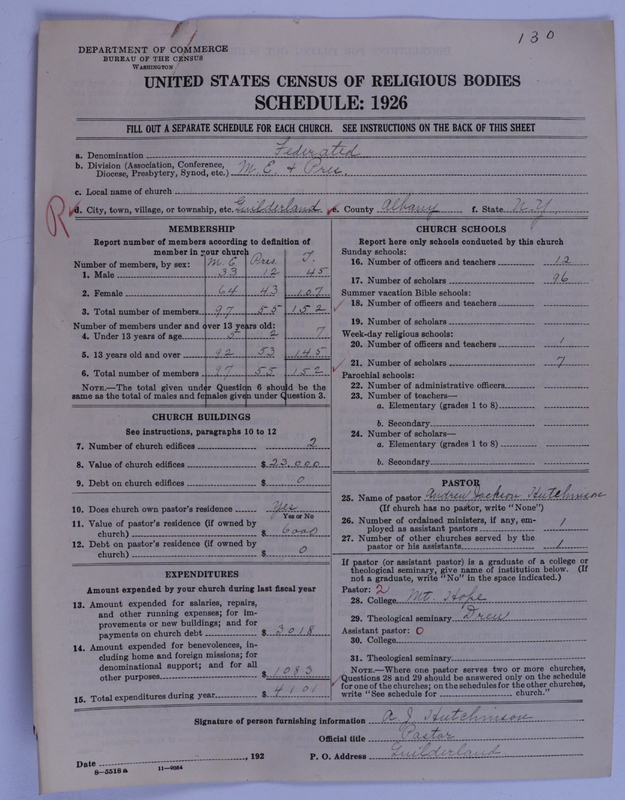 130
DEPARTMENT OF COMMERCE
BUREAU OF THE CENSUS
WASHINGTON
UNITED STATES CENSUS OF RELIGIOUS BODIES
SCHEDULE: 1926
FILL OUT A SEPARATE SCHEDULE FOR EACH CHURCH. SEE INSTRUCTIONS ON THE BACK OF THIS SHEET
a. Denomination Federated
b. Division (Association, Conference,
Diocese, Presbytery, Synod, etc.) M. E. & Pres.
c. Local name of church
R d. City, town, village, or township, etc. Guilderland e. County Albany f. State N.Y.
MEMBERSHIP
Report number of members according to definition of
member in your church
Number of members, by sex: M. E. Pres. T.
1. Male 33 12 45
2. Female 64 43 107
3. Total number of members 97 55 152
Number of members under and over 13 years old:
4. Under 13 years of age 5 2 7
5. 13 years old and over 92 53 145
6. Total number of members 97 55 152
NOTE.—The total given under Question 6 should be the
same as the total of males and females given under Question 3.
CHURCH BUILDINGS
See instructions, paragraphs 10 to 12
7. Number of church edifices 2
8. Value of church edifices $ 23,000
9. Debt on church edifices $ 0
10. Does church own pastor's residence Yes
Yes or No
11. Value of pastor's residence (if owned by
church) $ 6000
12. Debt on pastor's residence (if owned by
church) $ 0
EXPENDITURES
Amount expended by your church during last fiscal year
13. Amount expended for salaries, repairs,
and other running expenses; for im-
provements or new buildings; and for
payments on church debt $ 3018
14. Amount expended for benevolences, in-
cluding home and foreign missions; for
denominational support; and for all
other purposes $ 1083
15. Total expenditures during year $ 4101
CHURCH SCHOOLS
Report here only schools conducted by this church
Sunday schools:
16. Number of officers and teachers 12
17. Number of scholars 96
Summer vacation Bible schools:
18. Number of officers and teachers
19. Number of scholars
Week-day religious schools:
20. Number of officers and teachers 1
21. Number of scholars 7
Parochial schools:
22. Number of administrative officers
23. Number of teachers—
a. Elementary (grades 1 to 8)
b. Secondary
24. Number of scholars—
a. Elementary (grades 1 to 8)
b. Secondary
PASTOR
25. Name of pastor Andrew Jackson Hutchinson
(If church has no pastor, write "None")
26. Number of ordained ministers, if any, em-
ployed as assistant pastors 1
27. Number of other churches served by the
pastor or his assistants 1
If pastor (or assistant pastor) is a graduate of a college or
theological seminary, give name of institution below. (If
not a graduate, write "No" in the space indicated.)
Pastor: 2
28. College Mt. Hope
29. Theological seminary Drew
Assistant pastor: 0
30. College
31. Theological seminary
NOTE.—Where one pastor serves two or more churches,
Questions 28 and 29 should be answered only on the schedule
for one of the churches; on the schedules for the other churches,
write "See schedule for church."
Signature of person furnishing information A J Hutchinson
Official title Pastor
Date , 192 P. O. Address Guilderland
8—5518 a 11—9264